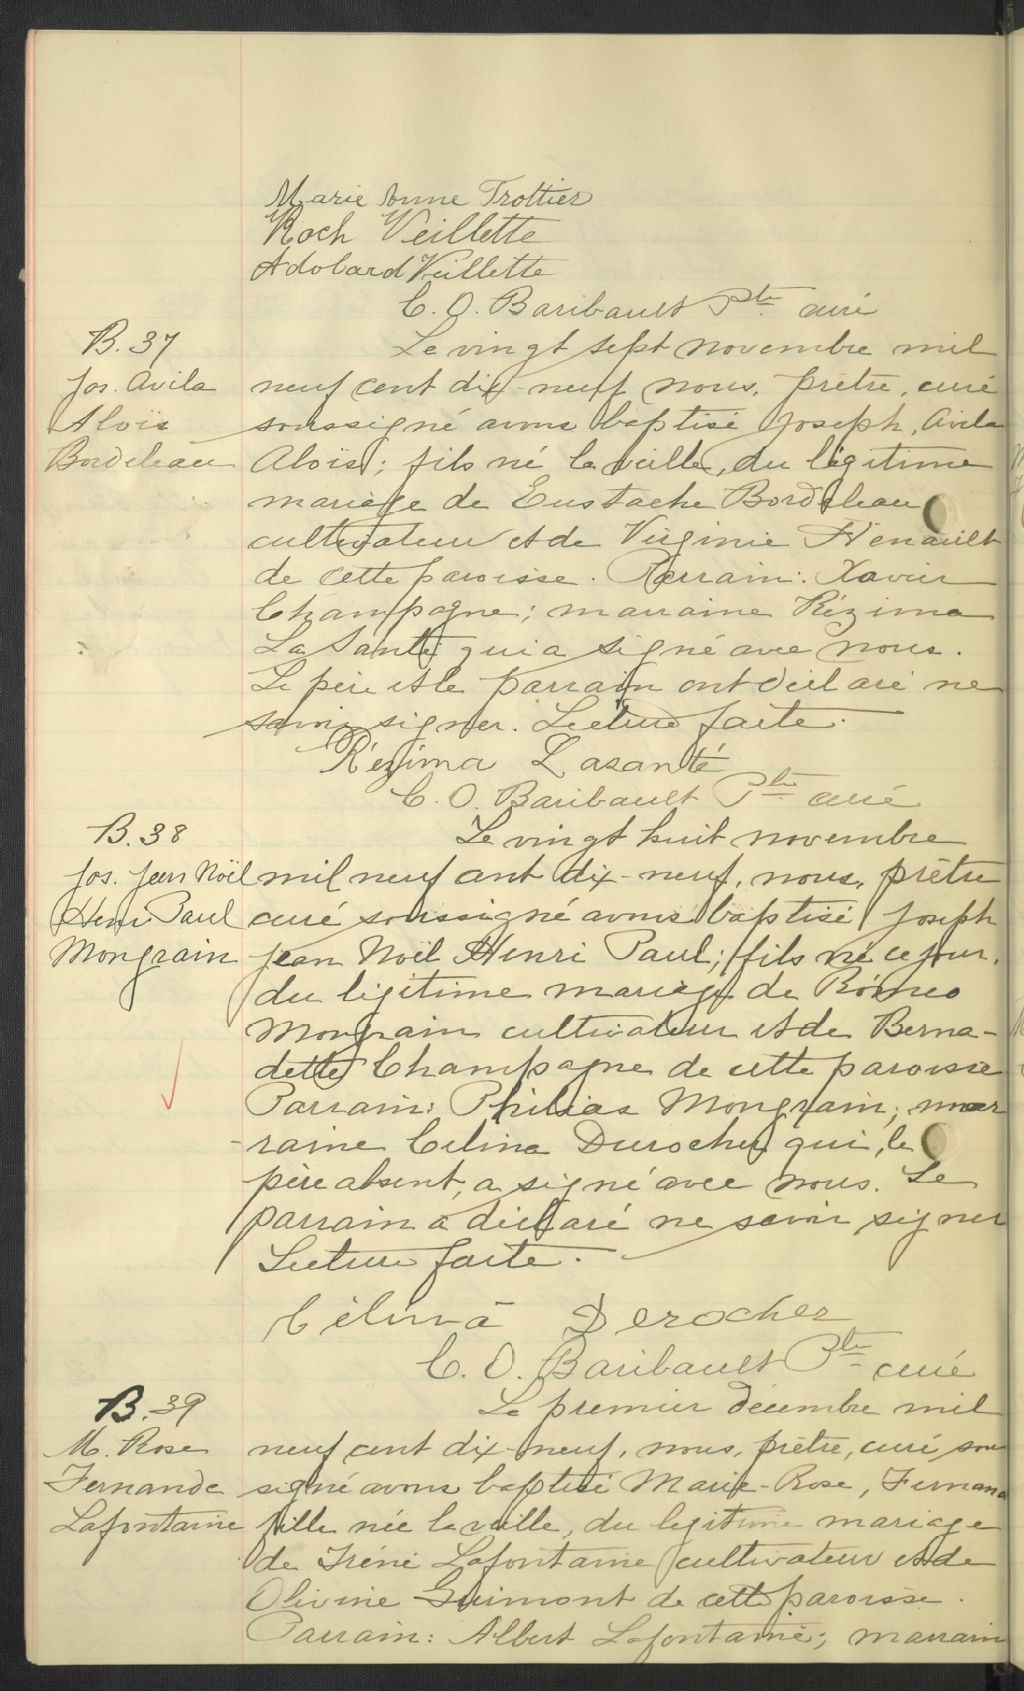 Marie Anne Trottier
Roch Veillette
Adolard Veillette
C. O. Baribault Ptre curé
B. 37
Jos. Avila
Aloïs
Bordeleau
Le vingt sept novembre mil
neuf cent dix-neuf nous, prêtre, curé
soussigné avons baptisé Joseph, Avila
Aloïs; fils né la veille, du légitime
mariage de Eustache Bordeleau
cultivateur et de Virginie Hénault
de cette paroisse. Parrain: Xavier
Champagne; marraine Rézima
La Santé qui a signé avec nous.
Le père et le parrain ont déclaré ne
savoir signer. Lecture faite.
Rézima Lasanté
C. O. Baribault Ptre curé
B. 38
Jos. Jean Noël
Henri Paul
Mongrain
Le vingt huit novembre
mil neuf cent dix-neuf, nous, prêtre
curé soussigné avons baptisé Joseph
Jean Noël Henri Paul; fils né ce jour,
du légitime mariage de Roméo
Mongrain cultivateur et de Berna-
dette Champagne de cette paroisse
Parrain: Philias Mongrain; mar
-raine Celina Durocher qui, le
père absent, a signé avec nous. Le
parrain a déclaré ne savoir signer
Lecture faite.
Célina Derocher
C. O. Baribault Ptre curé
B. 39
M. Rose
Fernande
Lafontaine
Le premier décembre mil
neuf cent dix-neuf, nous, prêtre, curé, sous
signé avons baptisé Marie-Rose, Fernand
fille née la veille, du légitime mariage
de Iréné Lafontaine cultivateur et de
Olivine Guimont de cette paroisse.
Parrain: Albert Lafontaine; marrain